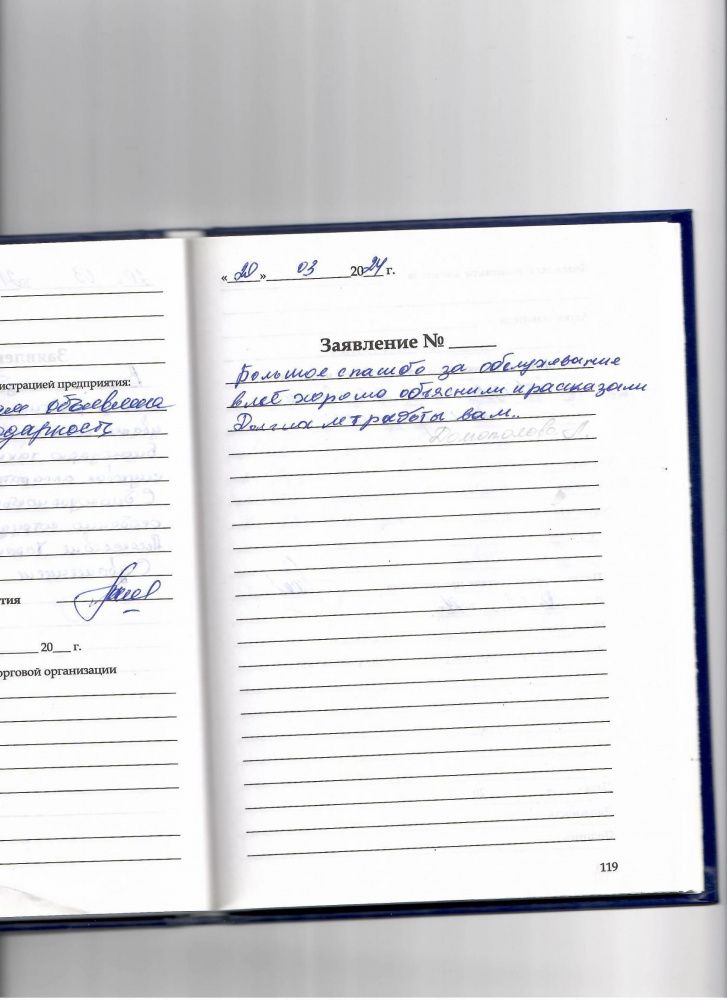 истрацией предприятия:
объявлена
одарность
тия
20 г.
орговой организации
«20» 03 2024 г.
Заявление №
Большое спасибо за обслуживание
всё хорошо объяснили и рассказали
Долгих лет работы вам..
119